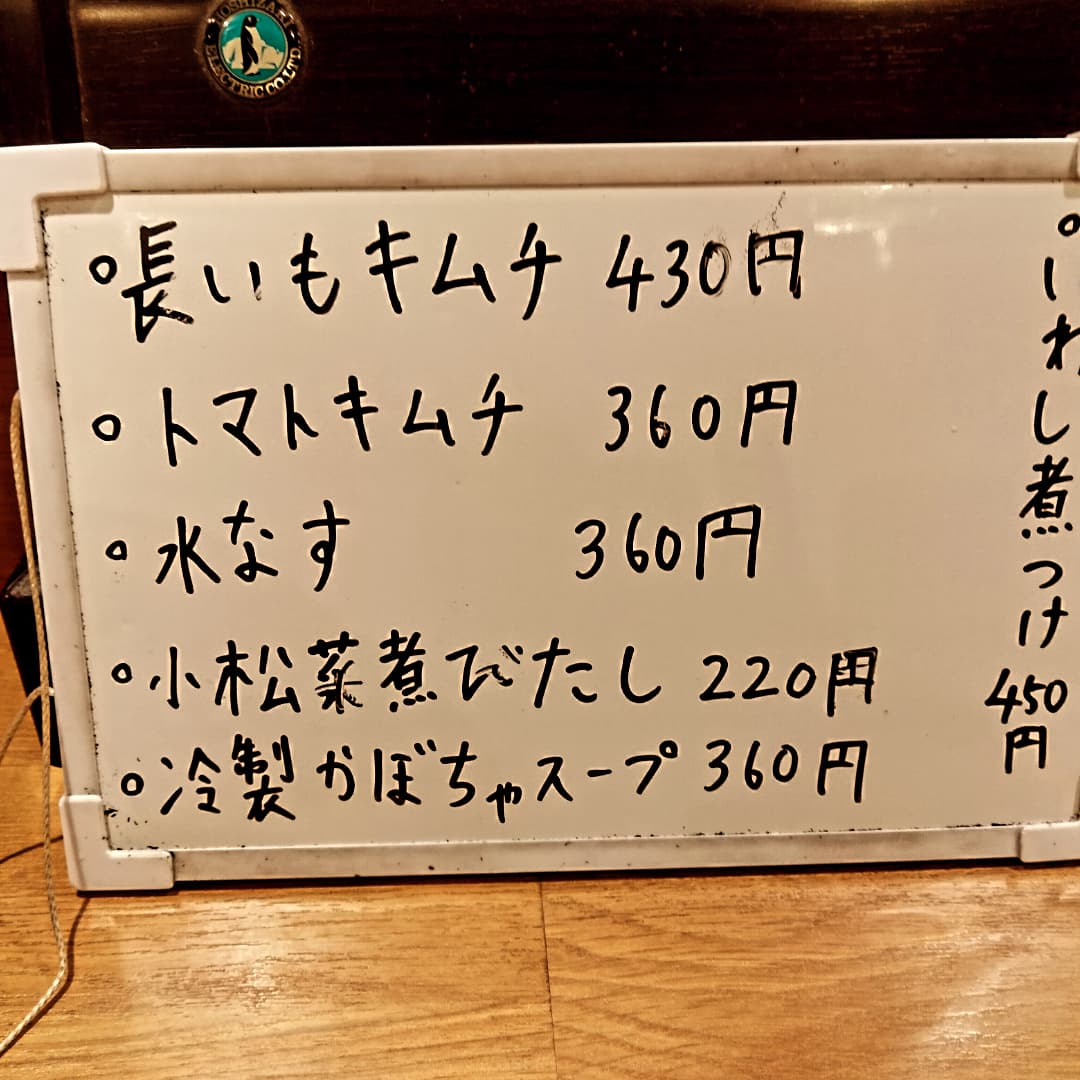 HOSHIZAKI ELECTRIC CO.,LTD.
○長いもキムチ 430円
○トマトキムチ 360円
○水なす 360円
○小松菜煮びたし 220円
○冷製かぼちゃスープ 360円
○いわし煮つけ 450円